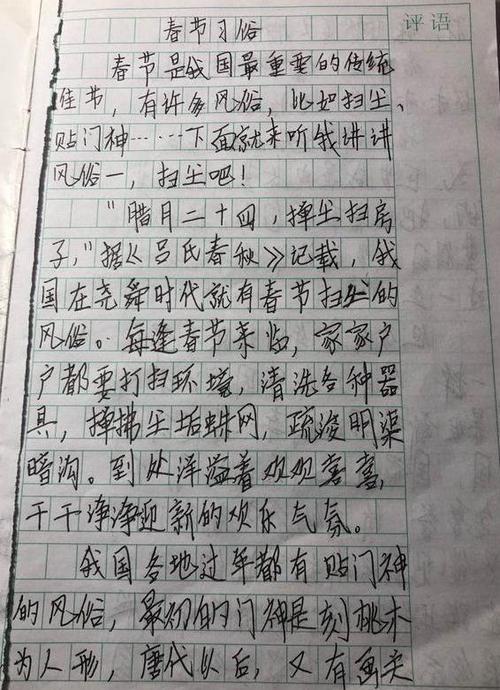 评语
春节习俗
春节是我国最重要的传统
佳节，有许多风俗，比如扫尘、
贴门神……下面就来听我讲讲
风俗一，扫尘吧！
“腊月二十四，掸尘扫房
子，”据《吕氏春秋》记载，我
国在尧舜时代就有春节扫尘的
风俗。每逢春节来临，家家户
户都要打扫环境，清洗各种器
具，掸拂尘垢蛛网，疏浚明渠
暗沟。到处洋溢着欢欢喜喜，
干干净净迎新的欢乐气氛。
我国各地过年都有贴门神
的风俗，最初的门神是刻桃木
为人形，唐代以后，又有画关